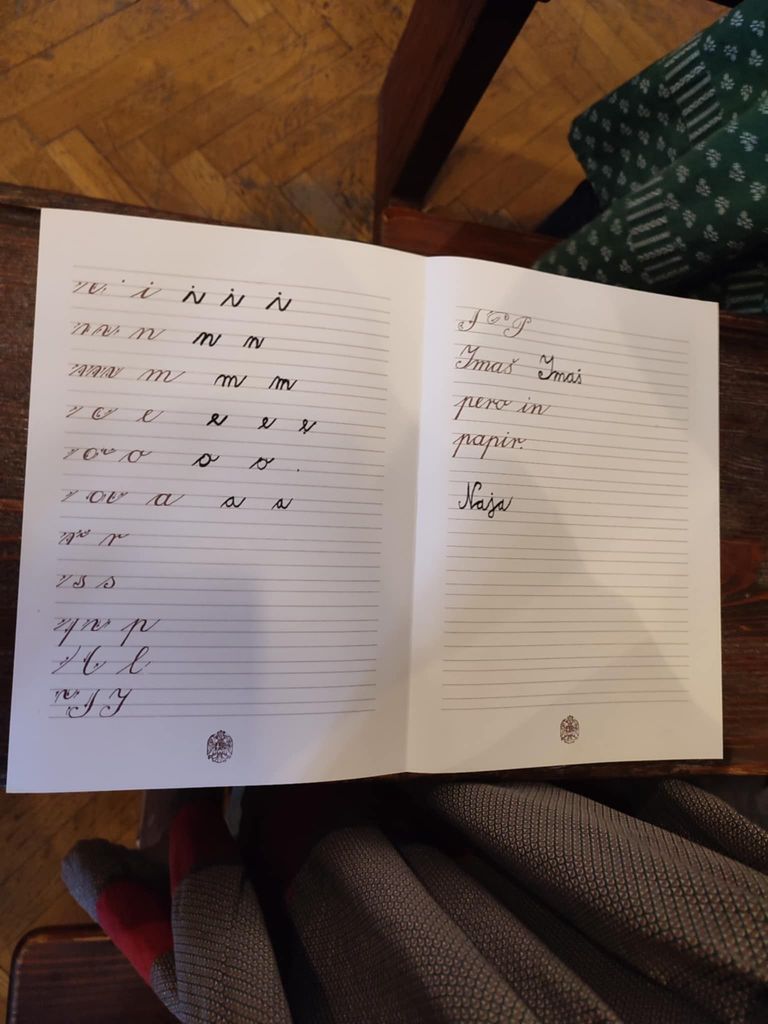 i i i i
n n n
m m m
e e e e
o o o
a a a
r
s s
p
l
I
Imaš Imaš
pero in
papir.
Naja